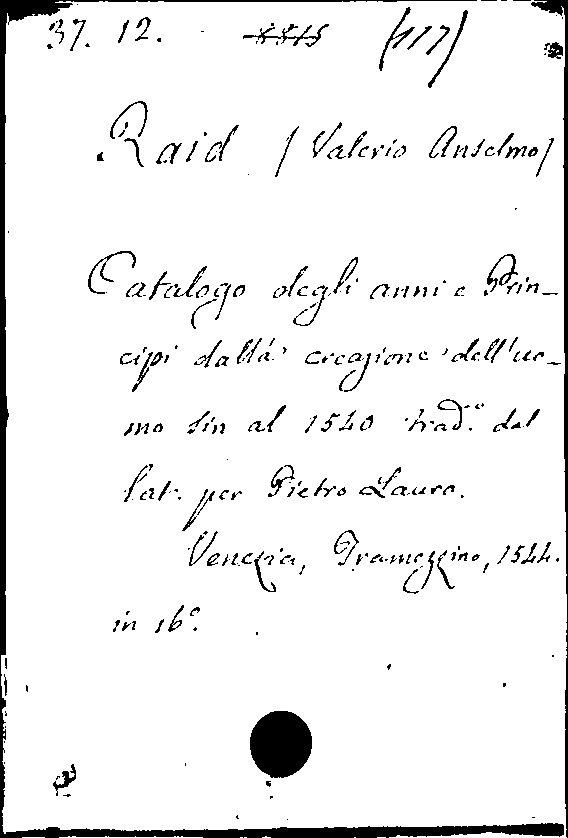 37. 12. 8815 (117)
Raid (Valerio Anselmo)
Catalogo degli anni e Prin-
cipi dalla creazione dell'uo-
mo sin al 1540 trad.º dal
lat. per Pietro Lauro.
Venezia, Tramezzino, 1544.
in 16º.